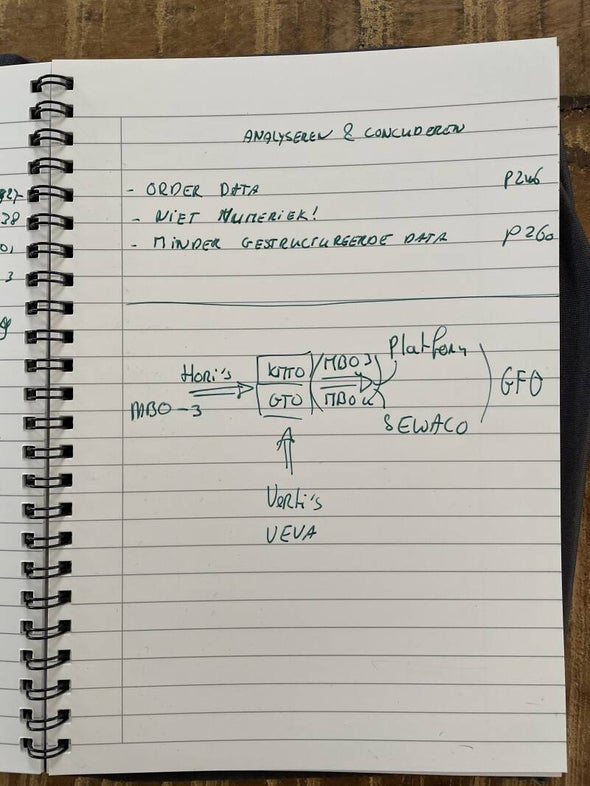 ANALYSEREN & CONCLUDEREN
- ORDER DATA P246
- NIET NUMERIEK!
- MINDER GESTRUCTUREERDE DATA P260
Hori's
MBO-3
KMTO
GTO
MBO3
MBO4
Platform
SEWACO
GFO
Verti's
VEVA
827
38
3